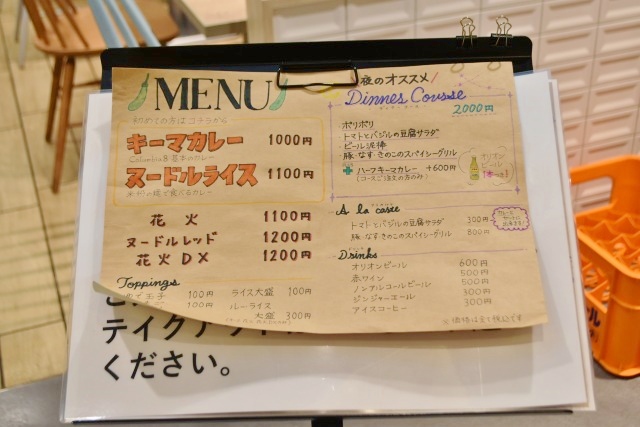 MENU
初めての方はコチラから
キーマカレー 1000円
Columbia8 基本のカレー
ヌードルライス 1100円
米粉の麺で食べるカレー
花火 1100円
ヌードルレッド 1200円
花火DX 1200円
Toppings
ゆで玉子 100円
ライス大盛 100円
ルーライス
大盛 300円
夜のオススメ!
Dinnes Cousse
2000円
・ポリポリ
・トマトとバジルの豆腐サラダ
・ビール泥棒
・豚・なす・きのこのスパイシーグリル
ハーフキーマカレー +600円
(コースご注文の方のみ)
オリオン
ビール
1本つき!
A la caste
トマトとバジルの豆腐サラダ 300円
豚・なす・きのこのスパイシーグリル 800円
Drinks
オリオンビール 600円
赤ワイン 500円
ノンアルコールビール 500円
ジンジャーエール 300円
アイスコーヒー 300円
※価格は全て税込です
テイクアウト
ください。